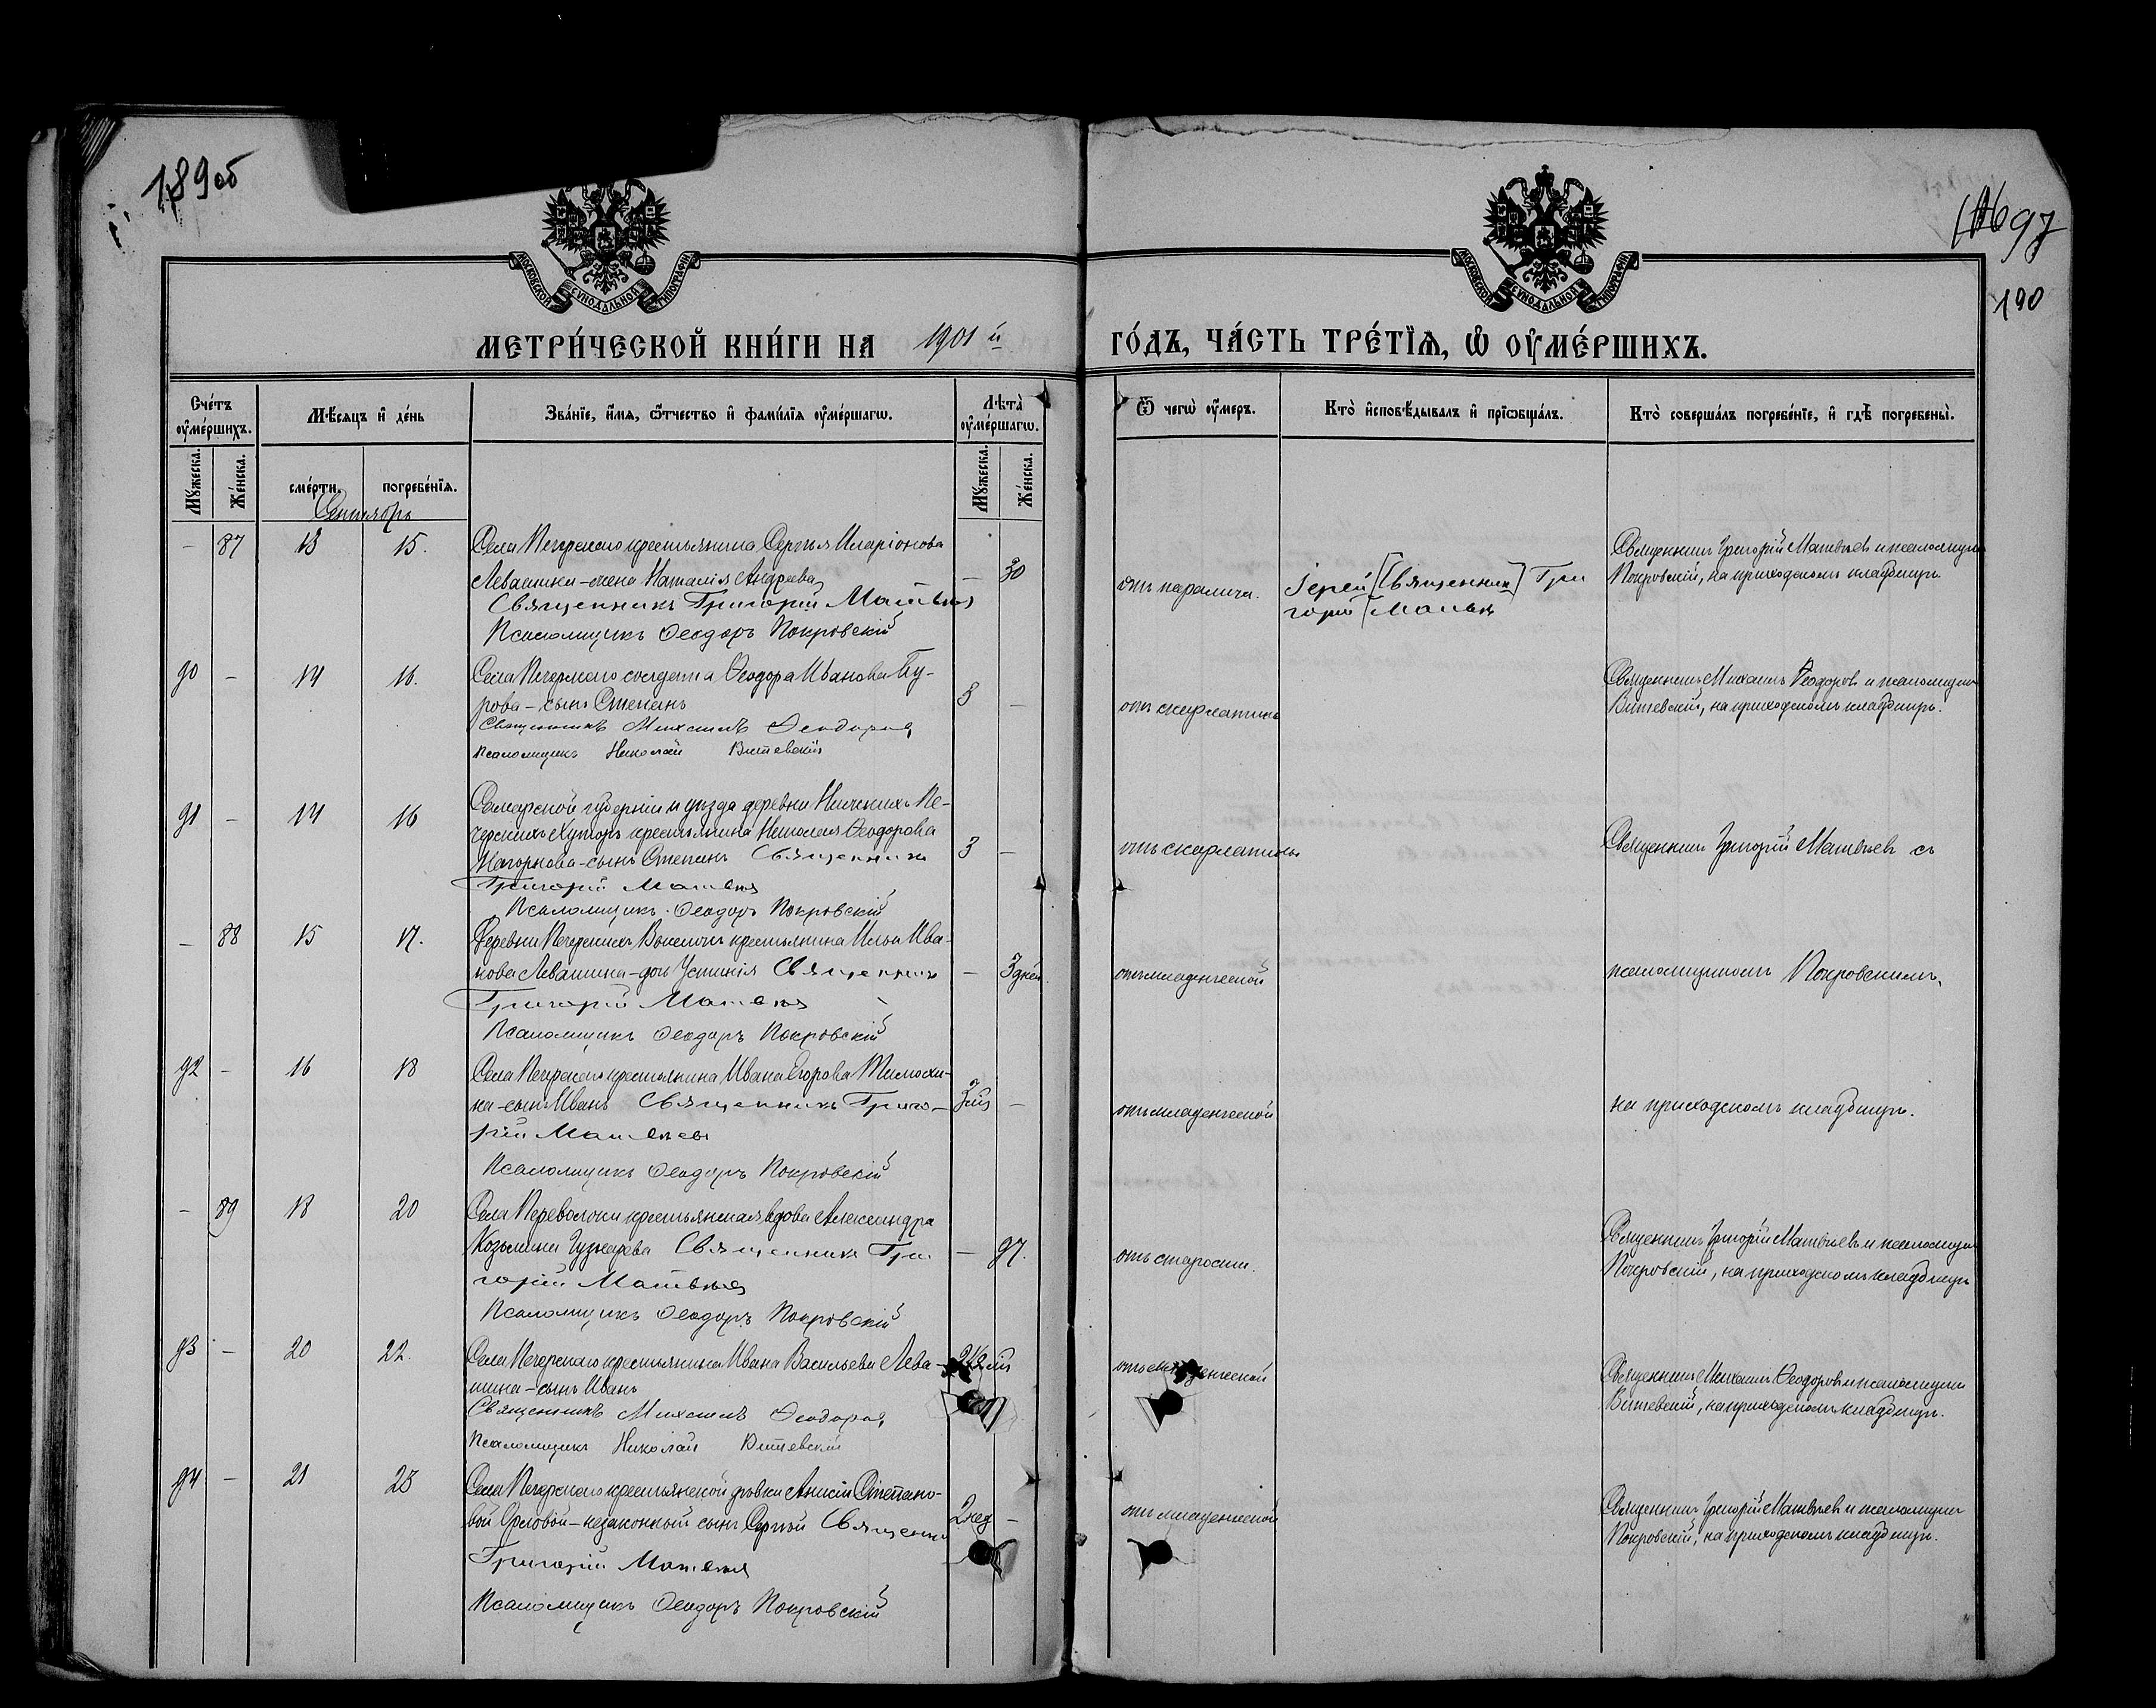 189об
97
190
МОСКОВСКОЙ СѴНОДАЛЬНОЙ ТИПОГРАФІИ
МОСКОВСКОЙ СѴНОДАЛЬНОЙ ТИПОГРАФІИ
МЕТРИ́ЧЕСКОЙ КНИ́ГИ НА 1901 й ГО́ДЪ, ЧА́СТЬ ТРЕ́ТЇѦ, Ѡ҆ ОУ҆МЕ́РШИХЪ.
Сче́тъ оу҆ме́ршихъ.
Мѣ́сяцъ и҆ де́нь
Зва́нїе, и҆́мя, ѻ҆́тчество и҆ фами́лїя оу҆ме́ршагѡ.
Лѣ́та оу҆ме́ршагѡ.
Ѿ чегѡ̀ оу҆́меръ.
Кто̀ и҆сповѣ́дывалъ и҆ прїѡбща́лъ.
Кто̀ соверша́лъ погребе́нїе, и҆ гдѣ̀ погребены̀.
Мꙋ́жеска.
Же́нска.
сме́рти.
погребе́нїя.
Мꙋ́жеска.
Же́нска.
Сентябрь
- 87 13 15. Села Печерскаго крестьянина Сергѣя Иларіонова
Левашки - жена Наталія Андреева - 30
Священникъ Григорій Матвѣевъ
Псаломщикъ Ѳеодоръ Покровскій
отъ паралича. Іерей [Священникъ] Гри
горій Матвѣев
Священникъ Григорій Матвѣевъ и псаломщикъ
Покровскій, на приходскомъ кладбищѣ.
90 - 14 16. Села Печерскаго солдата Ѳеодора Иванова Бу-
рова - сынъ Степанъ 8 -
Священникъ Михаилъ Ѳеодоровъ
Псаломщикъ Николай Витевскій
отъ скарлатины
Священникъ Михаилъ Ѳеодоровъ и псаломщикъ
Витевскій, на приходскомъ кладбищѣ.
91 - 14 16 Самарской губерніи и уѣзда деревни Нижнихъ Пе-
черскихъ Хуторъ крестьянина Николая Ѳеодорова
Нагорнова - сынъ Степанъ Священникъ 3 -
Григорій Матвѣевъ
Псаломщикъ Ѳеодоръ Покровскій
отъ скарлатины
Священникъ Григорій Матвѣевъ съ
- 88 15 17. Деревни Печерскихъ Выселокъ крестьянина Ильи Ива-
нова Левашина - дочь Устинія Священникъ - 3 дней
Григорій Матвѣевъ
Псаломщикъ Ѳеодоръ Покровскій
отъ младенческой
псаломщикомъ Покровскимъ,
92 - 16 18 Села Печерскаго крестьянина Ивана Егорова Тимохи-
на - сынъ Иванъ Священникъ Григо- -
рій Матвѣевъ
Псаломщикъ Ѳеодоръ Покровскій
отъ младенческой
на приходскомъ кладбищѣ.
- 89 18 20 Села Переволоки крестьянская вдова Александра
Козьмина Гузнаева Священникъ Гри - 97.
горій Матвѣевъ
Псаломщикъ Ѳеодоръ Покровскій
отъ старости.
Священникъ Григорій Матвѣевъ и псаломщикъ
Покровскій, на приходскомъ кладбищѣ
93 - 20 22. Села Печерскаго крестьянина Ивана Васильева Лева-
шина - сынъ Иванъ
Священникъ Михаилъ Ѳеодоровъ
Псаломщикъ Николай Витевскій
отъ младенческой
Священникъ Михаилъ Ѳеодоровъ и псаломщикъ
Витевскій, на приходскомъ кладбищѣ.
94 - 21 23 Села Печерскаго крестьянской дѣвки Анисіи Степано-
вой Орловой - незаконный сынъ Сергѣй Священникъ 2 нед -
Григорій Матвѣевъ
Псаломщикъ Ѳеодоръ Покровскій
отъ младенческой
Священникъ Григорій Матвѣевъ и псаломщикъ
Покровскій, на приходскомъ кладбищѣ.